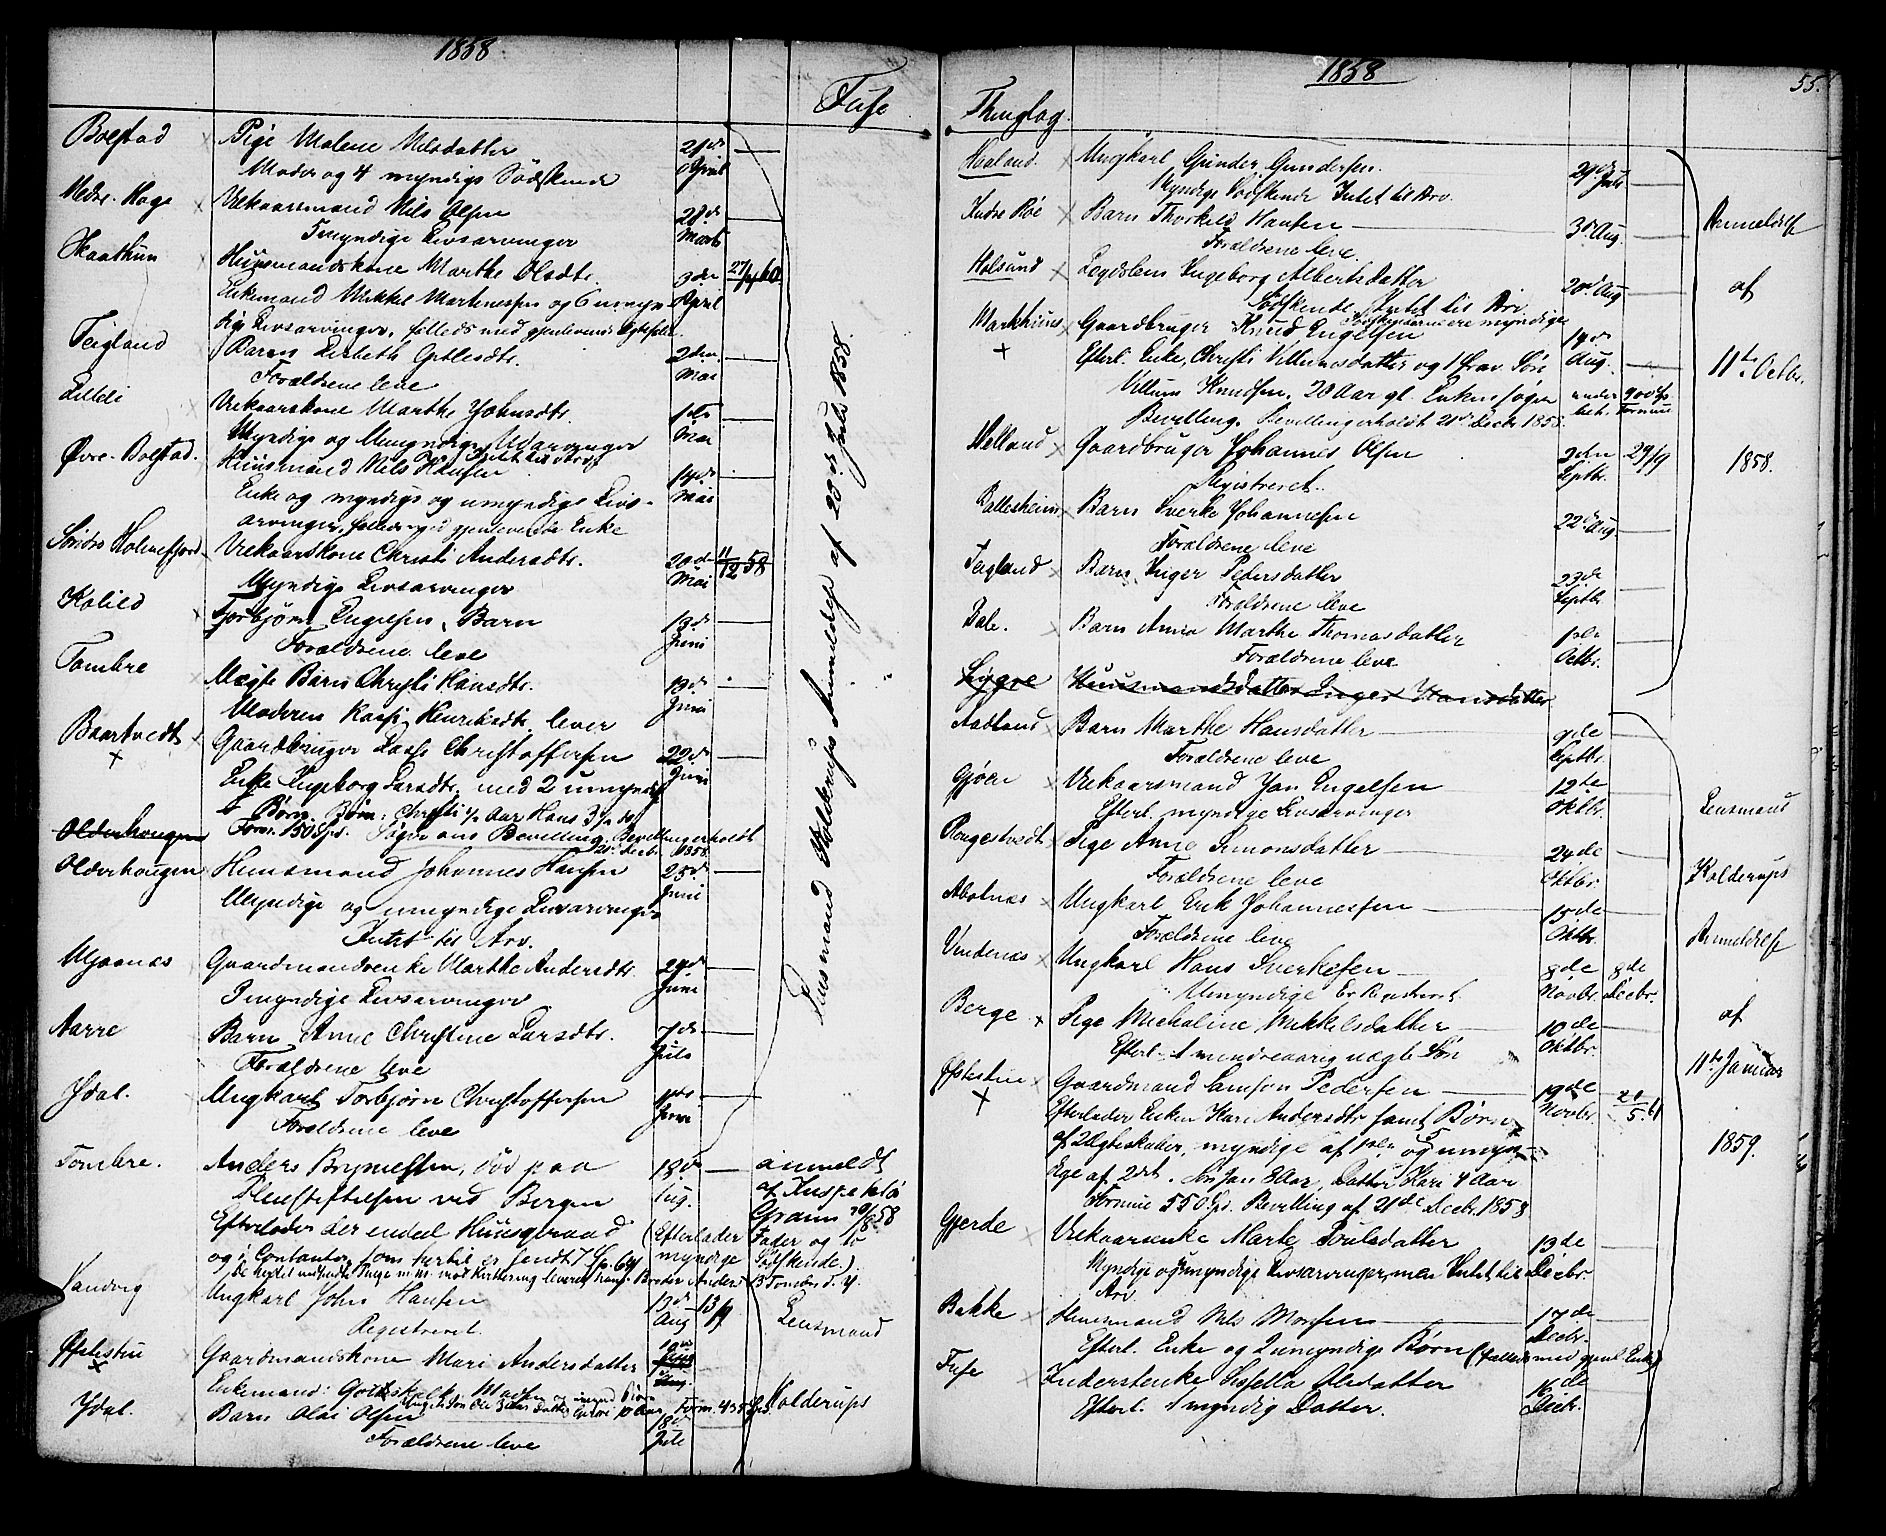 1858
Fuse
Bolstad Pige Malene Nilsdatter 21de April
Moder og 4 myndige Sødskende
Medre-Hage Vilkaarsmand Nils Olsen 28de Marts
3 myndige Livsarvinger
Skaathun Huusmandskone Marthe Olsdtr. 3die April
Enkemand Mikkel Martinessen og 6 umyn-
dige Livsarvinger, fælleds med gjenlevende Ægtefælle
Teigland Barn Lisbeth Gitlesdtr. 2den Mai
Forældrene leve
Vilkaarskone Marthe Johnsdtr. 1ste Mai
Myndige og Umyndige Udarvinger
Øvre-Bolstad. Huusmand Nils Hansen 14de Mai
Enke og myndige og umyndige Livs-
arvinger, fælleds med gjenlevende Enke
Søndre Holmefjord Vilkaarskone Christi Andersdtr. 20de Mai 11/12 58
Myndige Livsarvinger
Kolild Torbjørn Engelsen, Barn 13de Juni
Forældrene leve
Tombre Uægte Barn Christi Hansdtr. 13de Juni
Moderen Kaasi Henriksdtr. lever
Baartvedt Gaardbruger Lasse Christoffersen 22de Juni
Enke Ingeborg Larsdtr. med 2 umyndige
Børn: Christi 1/2 Aar Hans 3 1/2 do
Olderhougen Form. 150 Spd. Bevilling. Bevillingen holdt 21de Decbr. 1858.
Olderhougen Huusmand Johannes Hansen 25de Juni
Myndige og umyndige Livsarvinger
Intet til Arv.
Ujaanæs Gaardmandsenke Marthe Andersdtr. 29de Juni
3 myndige Livsarvinger
Aarre Barn Anne Christine Larsdtr. 7de Juli
Forældrene leve
Ydal. Ungkarl Torbjørn Christoffersen 11te Juni
Forældrene leve
Tombre. Anders Brynielsen, død paa 18de Aug. anmeldt
Pleiestiftelsen ved Bergen af Inspektør
Efterlader der endeel Huusgeraad (Efterlader Fader og to
og i Contanter, som hertil er sendt 7 Sp. myndige Sødskende.)
Vandvig Ungkarl John Hansen 13de Aug 13/9
Registreret.
Øvlestin Gaardmandskone Mari Andersdatter
Enkemand: Gotskalk
Ydal. Barn Olai Olsen 18de Juli
Forældrene leve
Lensmand Kolderups Anmeldelse af 20de Juli 1858.
Lensmand
Kolderups
1858
55.
Thinglag.
Haaland. Ungkarl Gunder Gundersen. 29de Juli
Myndige Sødskende Intet til Arv.
Indre Røe Barn Thorkild Hansen 3die Aug.
Forældrene leve
Holsund Lægdslem Ingeborg Albertsdatter 20de Aug
Sødskende Intet til Arv
Sødskenderne ere myndige
Markhuus Gaardbruger Knud Engelsen 14de Aug.
Efterl. Enke, Christi Villumsdatter og 1 frav. Søn
Villum Knudsen, 20 Aar gl. Enken søger under 900 Sp.
Bevilling. Bevillingen holdt 21de Decbr 1858. Formue
Helland Gaardbruger Johannes Olsen 2den Septbr. 29/9
Registreret.
Ballesheim Barn Sverke Johannesen 22de Aug.
Forældrene leve
Teigland Barn Inger Pedersdatter 23de Septbr
Forældrene leve
Dale. Barn Anna Marthe Thomasdatter 1ste Octbr.
Forældrene leve
Lygre Huusmandsdatter Inger Hansdatter
Aadland Barn Marthe Hansdatter 9de Septbr.
Forældrene leve
Gjøen Vilkaarsmand Jan Engelsen 12te Oktbr.
Efterl. myndige Livsarvinger
Røgestvedt Pige Anne Simonsdatter 24de Oktbr
Forældrene leve
Aboltnæs Ungkarl Erik Johannessen 15de Oktbr.
Forældrene leve
Vindenæs Ungkarl Hans Sverkesen 8de Novbr. 8de Decbr.
Umyndige Er Registreret
Berge Pige Michaline Mikkelsdatter 10de Oktbr.
Efterl. 1 mindreaarig uægte Søn
Øvlestin Gaardmand Samson Pedersen 19de Novbr. 21/5 61
Efterlader Enken Kari Andersdtr samt Børn
af 2 Ægteskaber, myndige af 1ste og umyn-
dige af 2det. Søn Jan 8 Aar, Datter Kari 4 Aar
Formue 550 Spd. Bevilling af 21de Decbr. 1858
Gjerde Vilkaarsenke Marte Poulsdatter 13de Decbr.
Myndige og umyndige Livsarvinger, men Intet til
Arv
Bakke Huusmand Nils Monsen 17de Decbr.
Efterl. Enke og 2 umyndige Børn (fælleds med gjenl. Enke)
Fuse Inderstenke Sissella Olsdatter 16de Decbr.
Efterl. 1 myndig Datter.
Anmeldelse
af
11te Octbr.
1858.
Lensmand
Kolderups
Anmeldelse
af
11te Januar
1859.